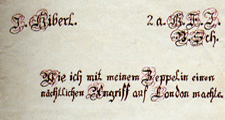 J. Hiberl. 2 a. K. F. J.
N. Sch.
Wie ich mit meinem Zeppelin einen
nächtlichen Angriff auf London machte.